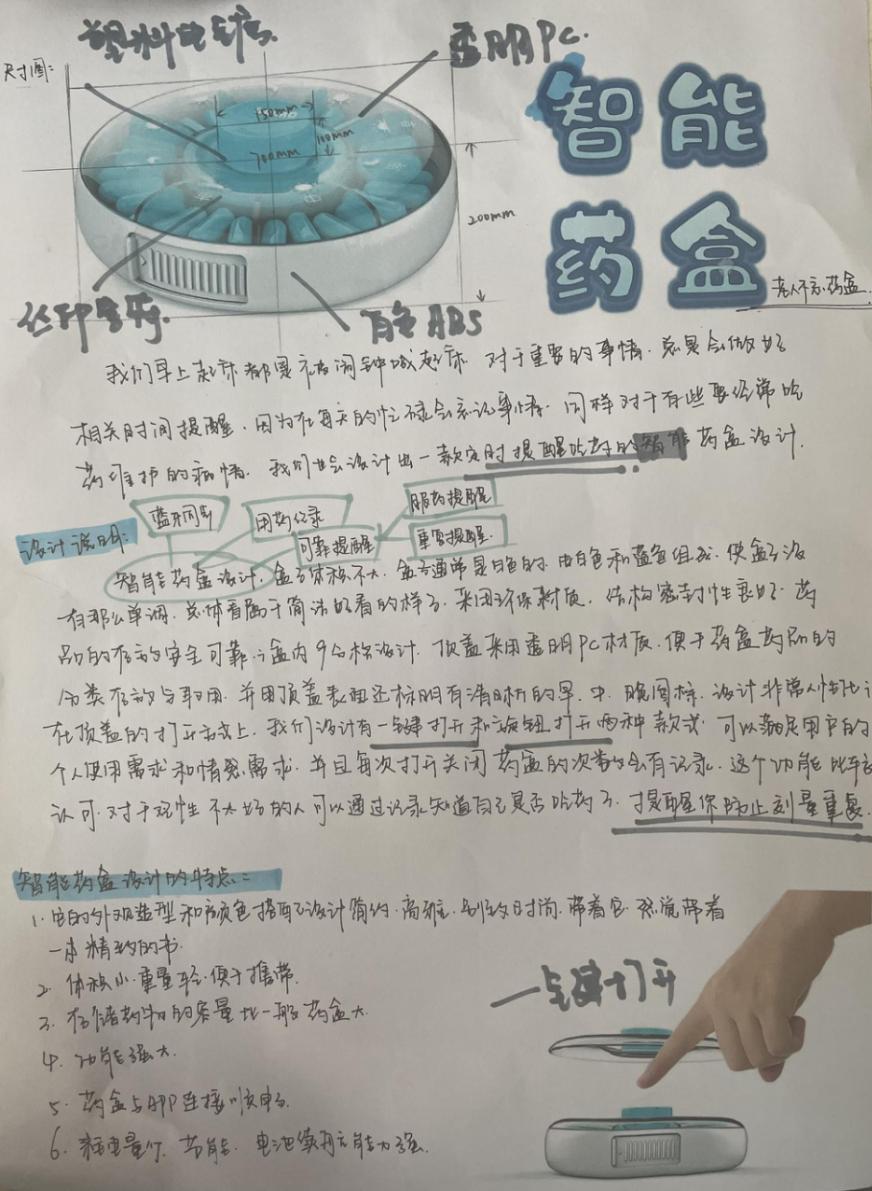 塑料电镀
透明PC.
尺寸图:
150mm
100mm
700mm
200mm
丝印字符.
白色ABS
智能
药盒
老人不忘药盒
我们早上起床都是被闹钟喊起床 对于重要的事情.总是会做好
相关时间提醒.因为在每天的忙碌会忘记事情.同样对于有些要经常吃
药维护的病情.我们也会设计出一款定时提醒吃药的智能药盒设计.
设计说明:
蓝牙同步
用药记录
可靠提醒
服药提醒
重复提醒.
智能药盒设计.盒子体积不大.盒子通常是白色的.由白色和蓝色组成.使盒子没
有那么单调.总体看属于简洁好看的样子.采用环保材质.结构密封性良好.药
品的存放安全可靠.盒内9分格设计.顶盖采用透明PC材质.便于药盒药品的
分类存放与取用.并用顶盖表面还标明有清晰的早.中.晚图标.设计非常人性化
在顶盖的打开方式上.我们设计有一键打开和旋钮打开两种款式.可以满足用户的
个人使用需求和情感需求.并且每次打开关闭药盒的次数会有记录.这个功能比较
认可.对于记性不太好的人可以通过记录知道自己是否吃药了.提醒你防止剂量重复.
智能药盒设计的特点:
1.它的外观造型和颜色搭配设计简约.高雅.别致时尚.带着它.感觉带着
一本精致的书.
2.体积小.重量轻.便于携带.
3.存储药物的容量比一般药盒大.
4.功能强大.
5.药盒与APP连接顺申.
6.耗电量低.节能.电池续航能力强.
一键打开